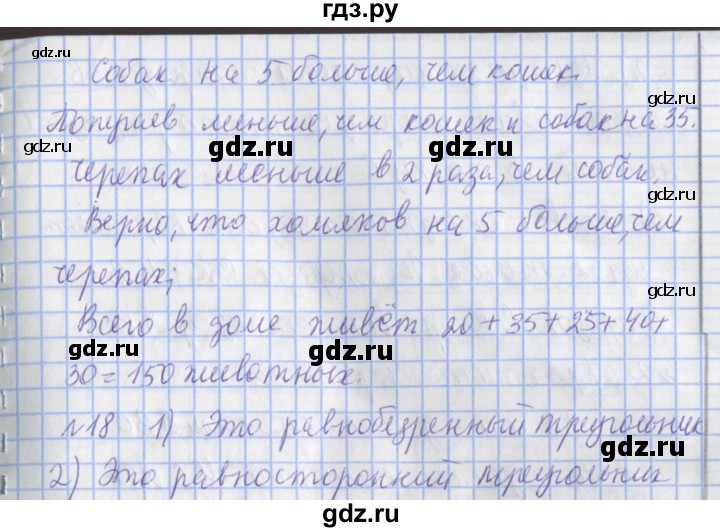 гдз.ру
gdz.ru gdz.ru
Собак на 5 больше, чем кошек.
Попугаев меньше, чем кошек и собак на 35.
gdz.ru gdz.ru gdz.ru
Черепах меньше в 2 раза, чем собак.
Верно, что хомяков на 5 больше, чем
черепах;
gdz.ru gdz.ru
Всего в доме живёт 20+35+25+40+
gdz.ru gdz.ru gdz.ru
30=150 животных.
№18 1) Это равнобедренный треугольник
gdz.ru gdz.ru
2) Это равносторонний треугольник
gdz.ru